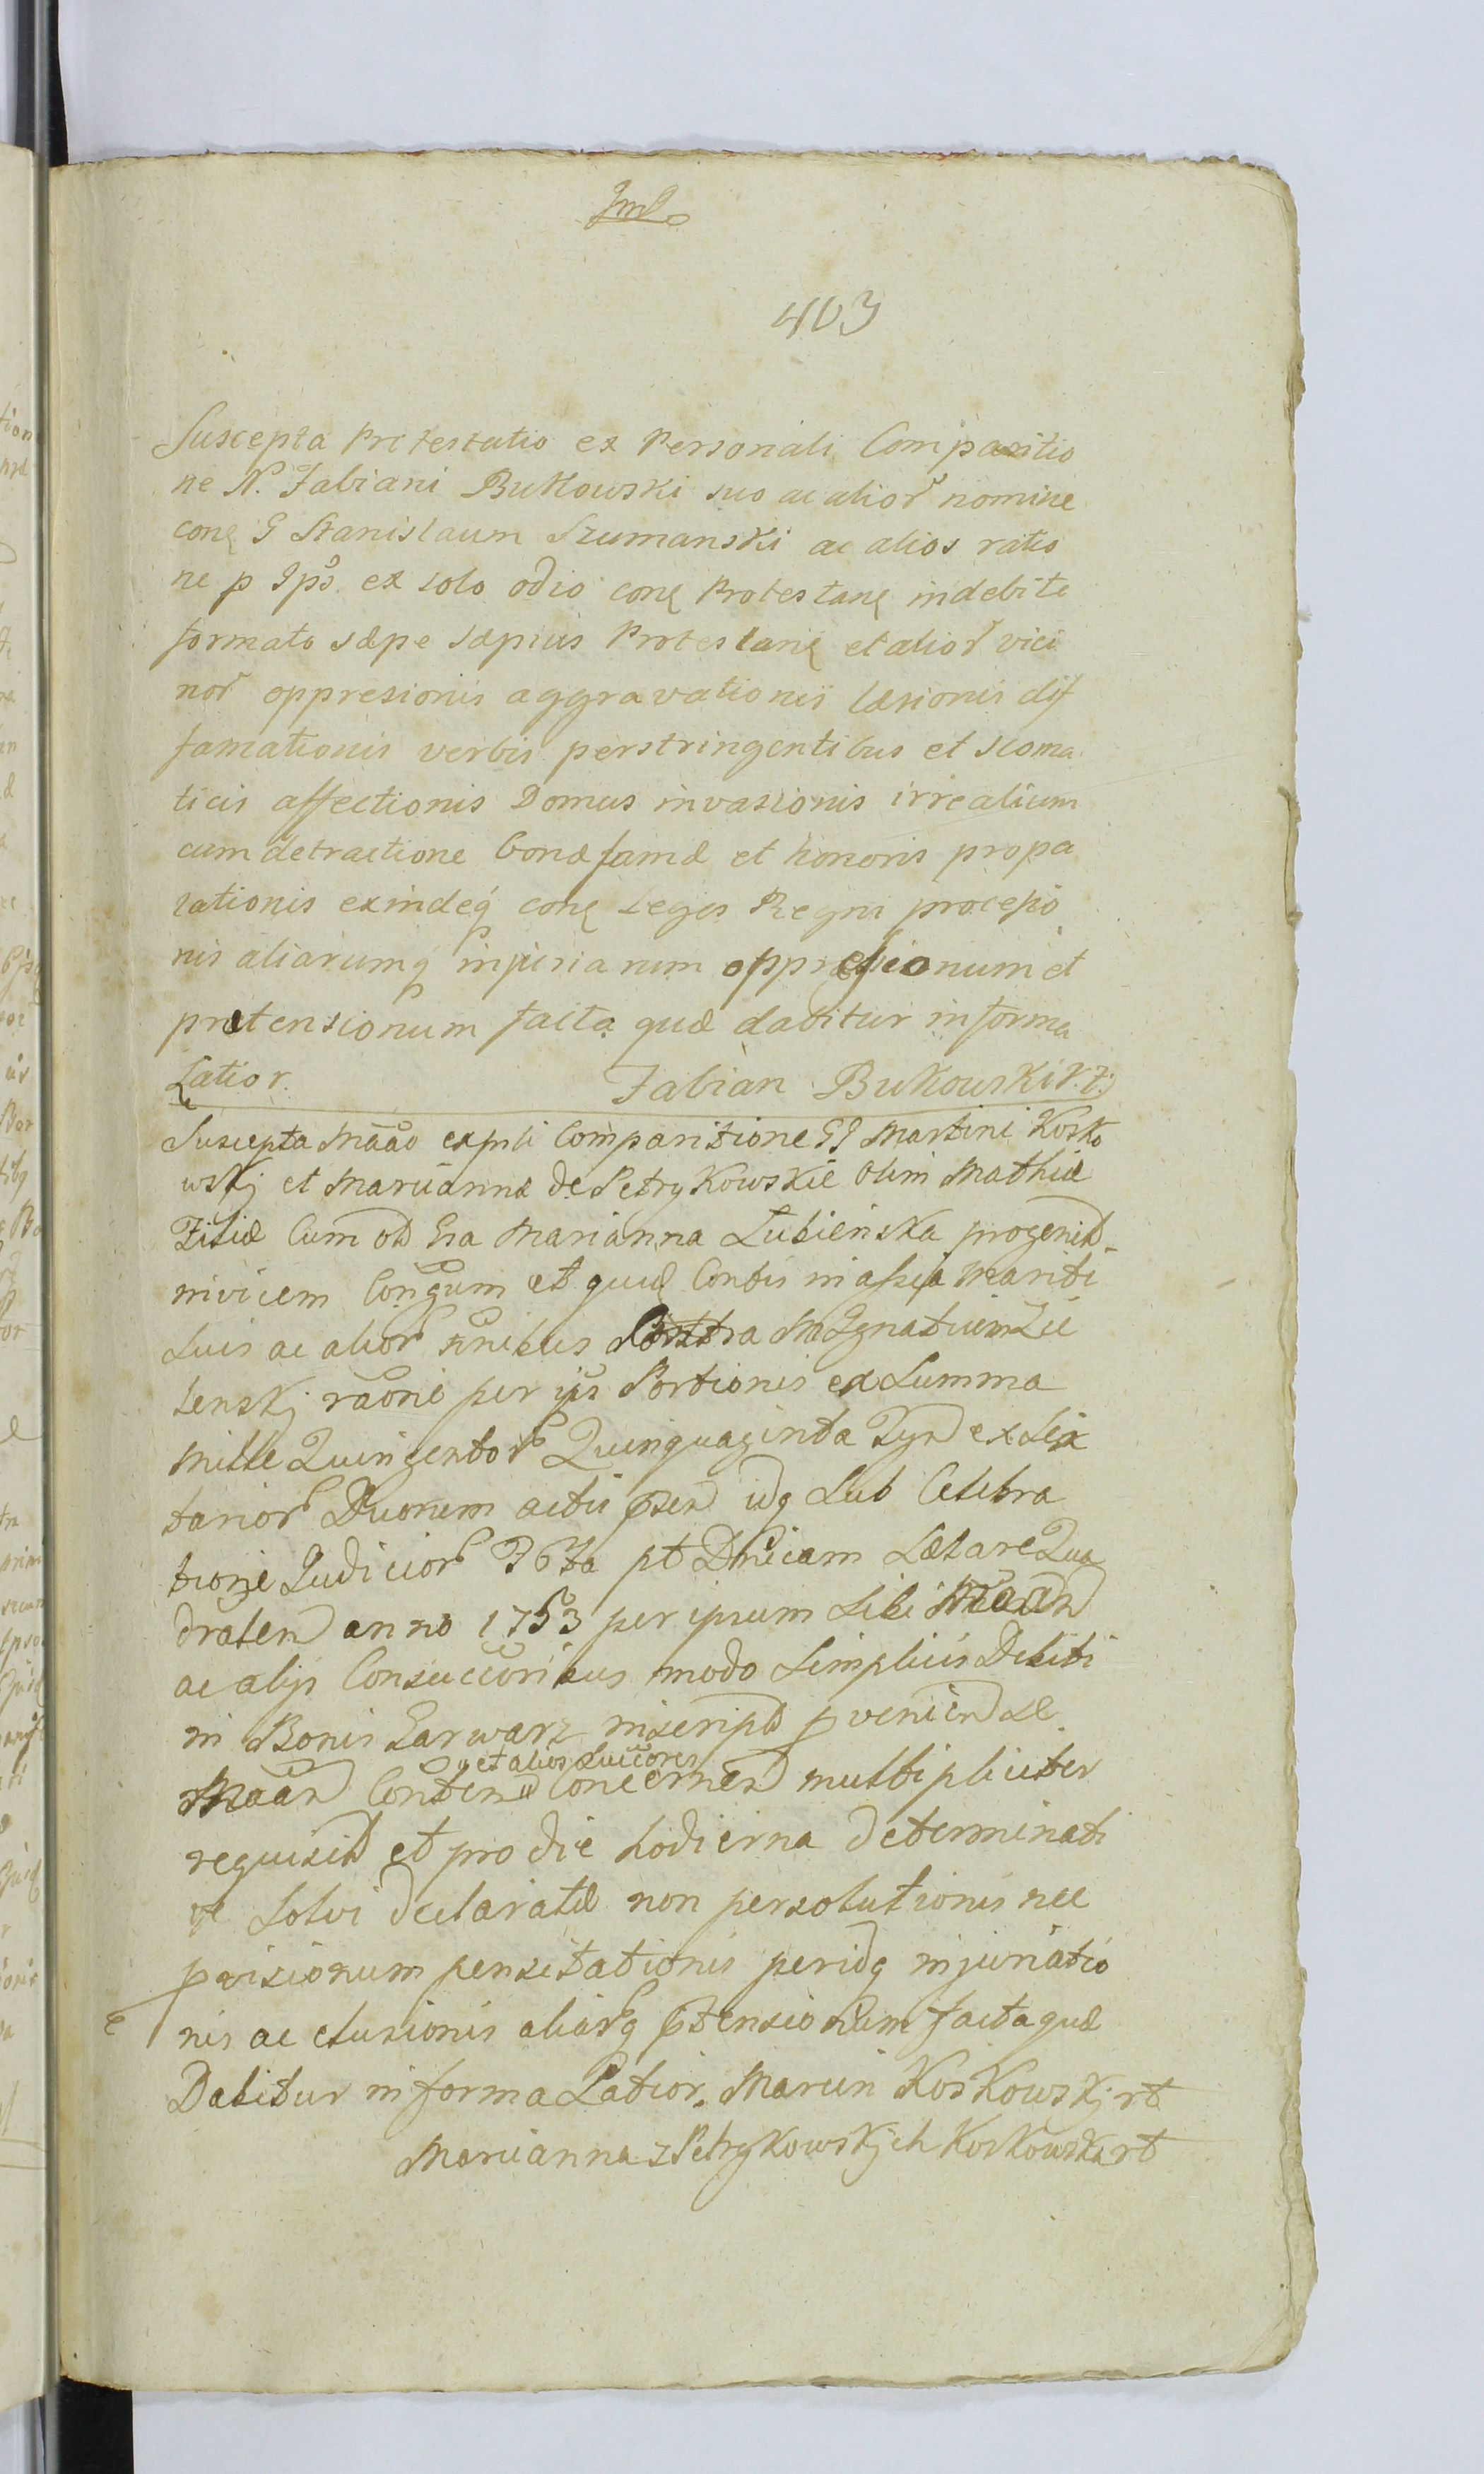 403
Suscepta Protestatio ex Personali Comparitio
ne N. Fabiani Bukowski suo ac alior nomine
conq G Stanislaum Szumanski ac alios ratio
ne p Ips ex solo odio conq Protestanq indebite
formato sæpe sæpius Protestanq et alior vici
nor oppresionis aggravationis læsionis dif
famationis verbis perstringentibus et scoma
ticis affectionis Domus invasionis irrealium
cum detractione bonæ famæ et honoris propa
lationis exindeq conq Leges Regni processio
nis aliarumq injuriarum oppressionum et
prætensionum facta quæ dabitur in forma
Latior. Fabian Bukowski
Suscepta Mãão ex pnli Comparitione GG Martini Kosko
wskj et Mariannæ de Petrykowskie olim Mathiæ
Filiæ Cum od Gsa Marianna Lubienska progenit
invicem Conqum et quid Contis in assia Mariti
Suis ac alior nnibus Conttra M Ignatium Lie
tenskj raone per ips Portionis ex Summa
Mille Quingentor Quinquaginta Tyn ex Six
tarior Duorum actu psen idq Sub Celebra
tione Judicior pt Dnicam Lætare Qua
draten anno 1753 per ipsum Sibi Maan
ac alijs Consuccoribus modo Simplicis Debiti
in Bonis Garwarz inscript pvenien se
et alios Succores
Maan Conten Concernen multipliciter
requisit et pro die hodierna determinati
ve Solvi declaratæ non persolutionis nec
pvisionum pensitationis peridq injuriatio
nis ac elusionis aliarq ptensionum facta quæ
Dabitur in forma Latior. Marcin Koskowskj rt
Marianna z Petrykowskjch Koskowska rt